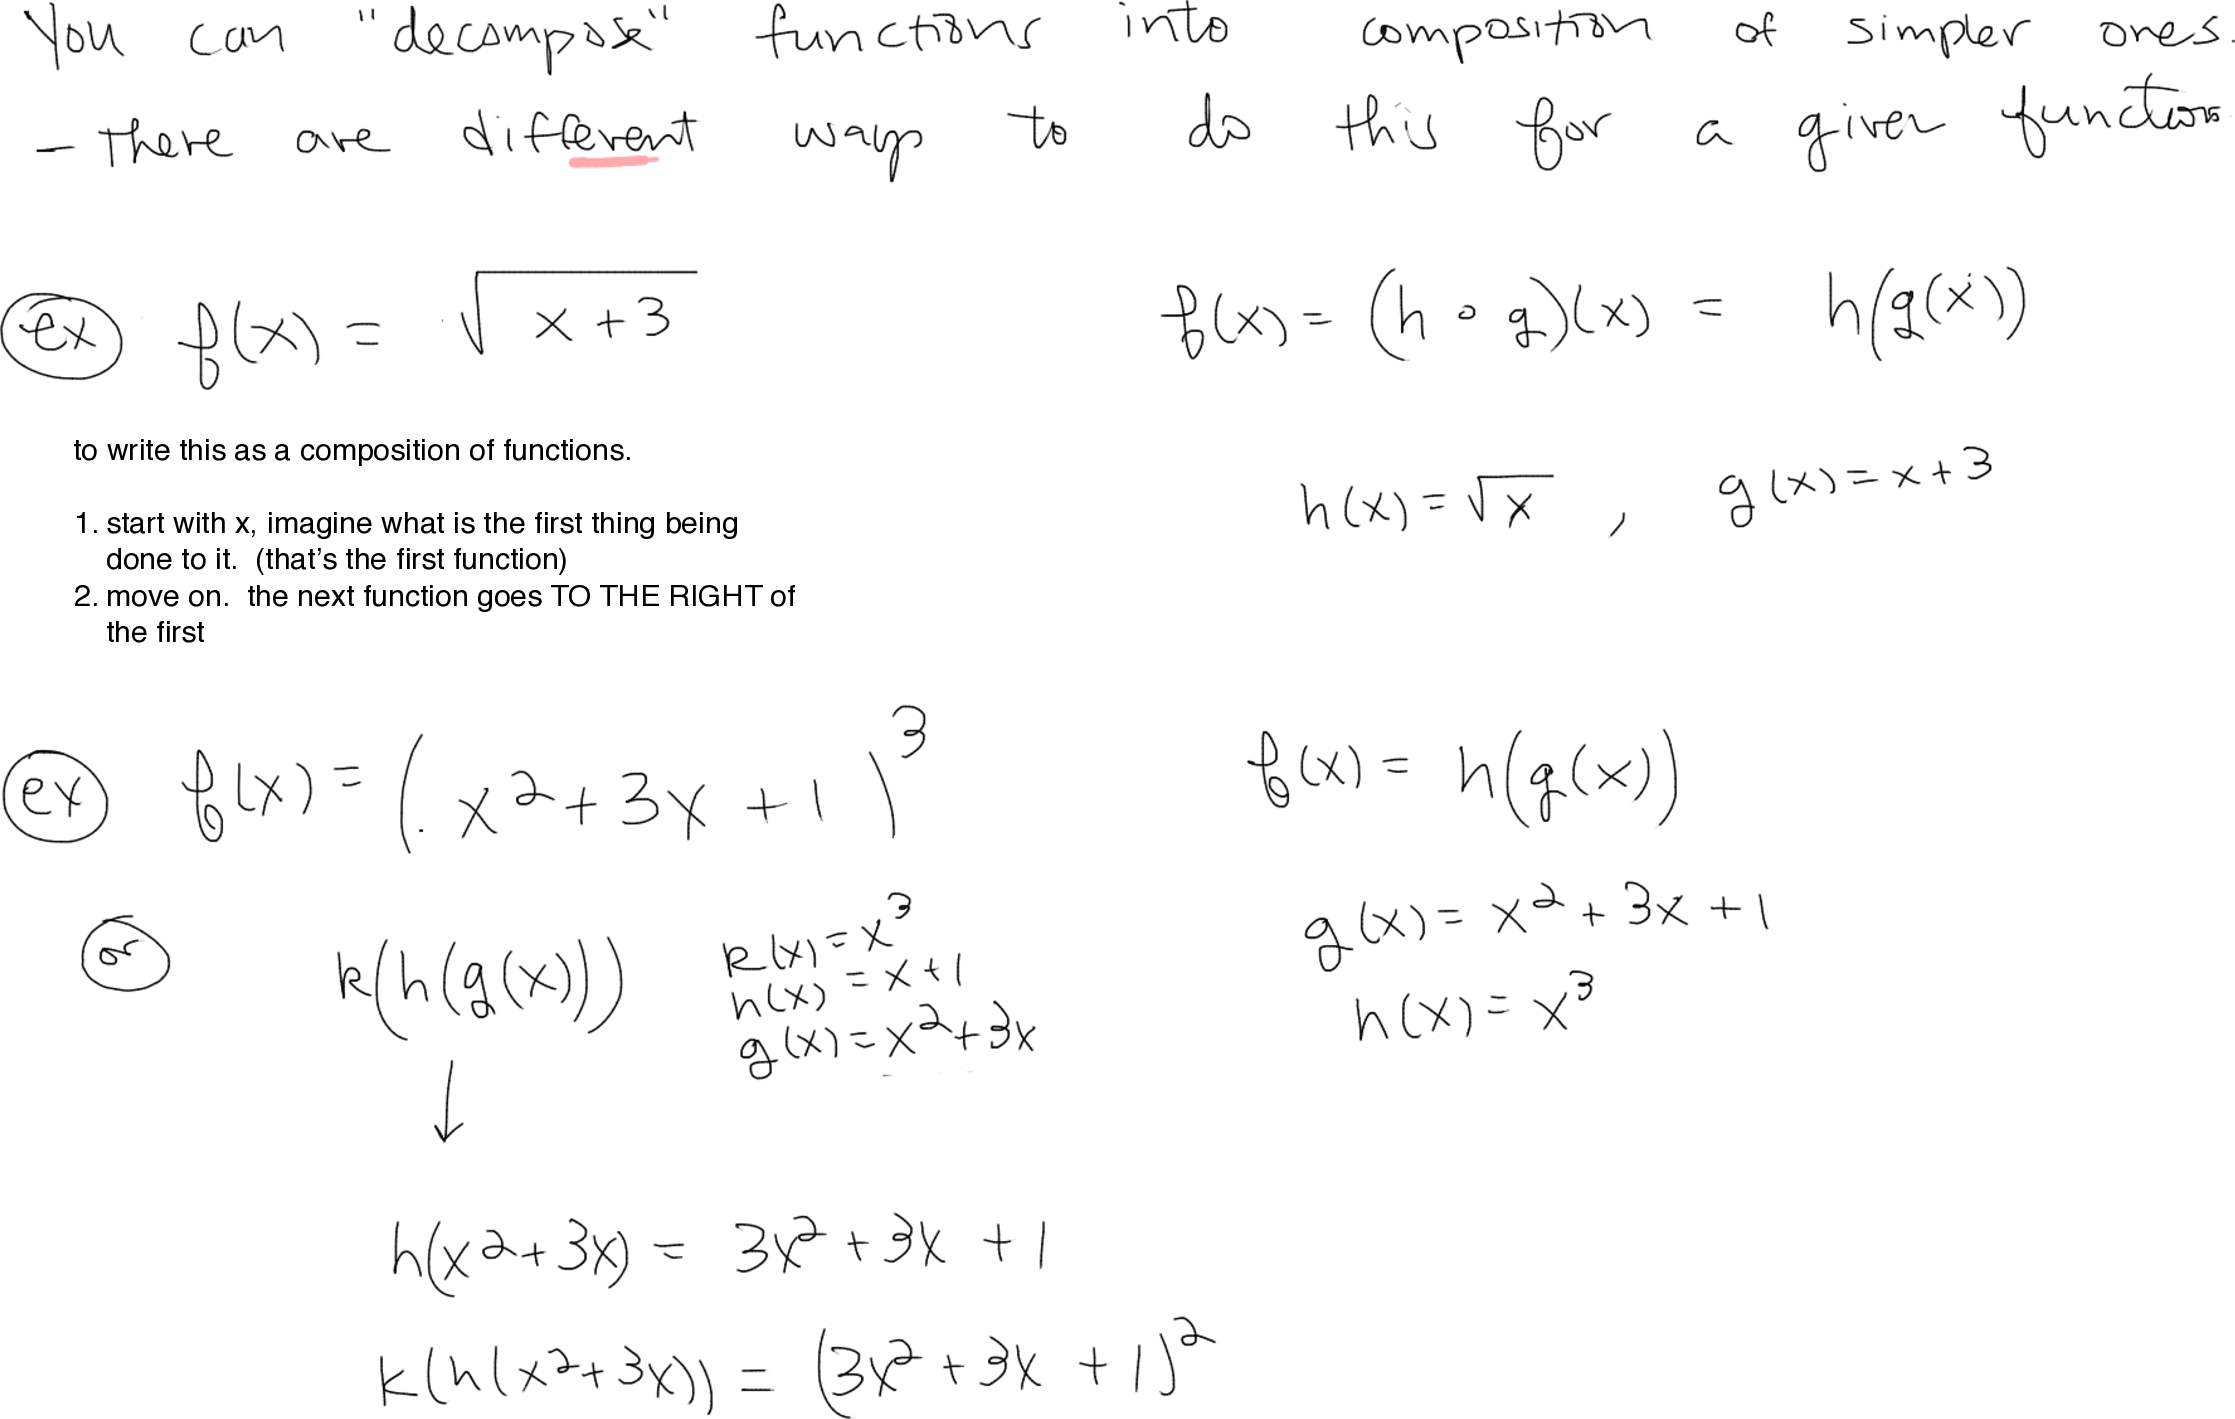 You can "decompose" functions into composition of simpler ones.
- there are different ways to do this for a given function
ex f(x) = √(x+3) f(x) = (h ∘ g)(x) = h(g(x))
to write this as a composition of functions.
h(x) = √x , g(x) = x+3
1. start with x, imagine what is the first thing being
done to it. (that's the first function)
2. move on. the next function goes TO THE RIGHT of
the first
ex f(x) = (x²+3x+1)³ f(x) = h(g(x))
or k(h(g(x))) k(x) = x³ g(x) = x²+3x+1
h(x) = x+1 h(x) = x³
g(x) = x²+3x
↓
h(x²+3x) = 3x²+3x+1
k(h(x²+3x)) = (3x²+3x+1)²